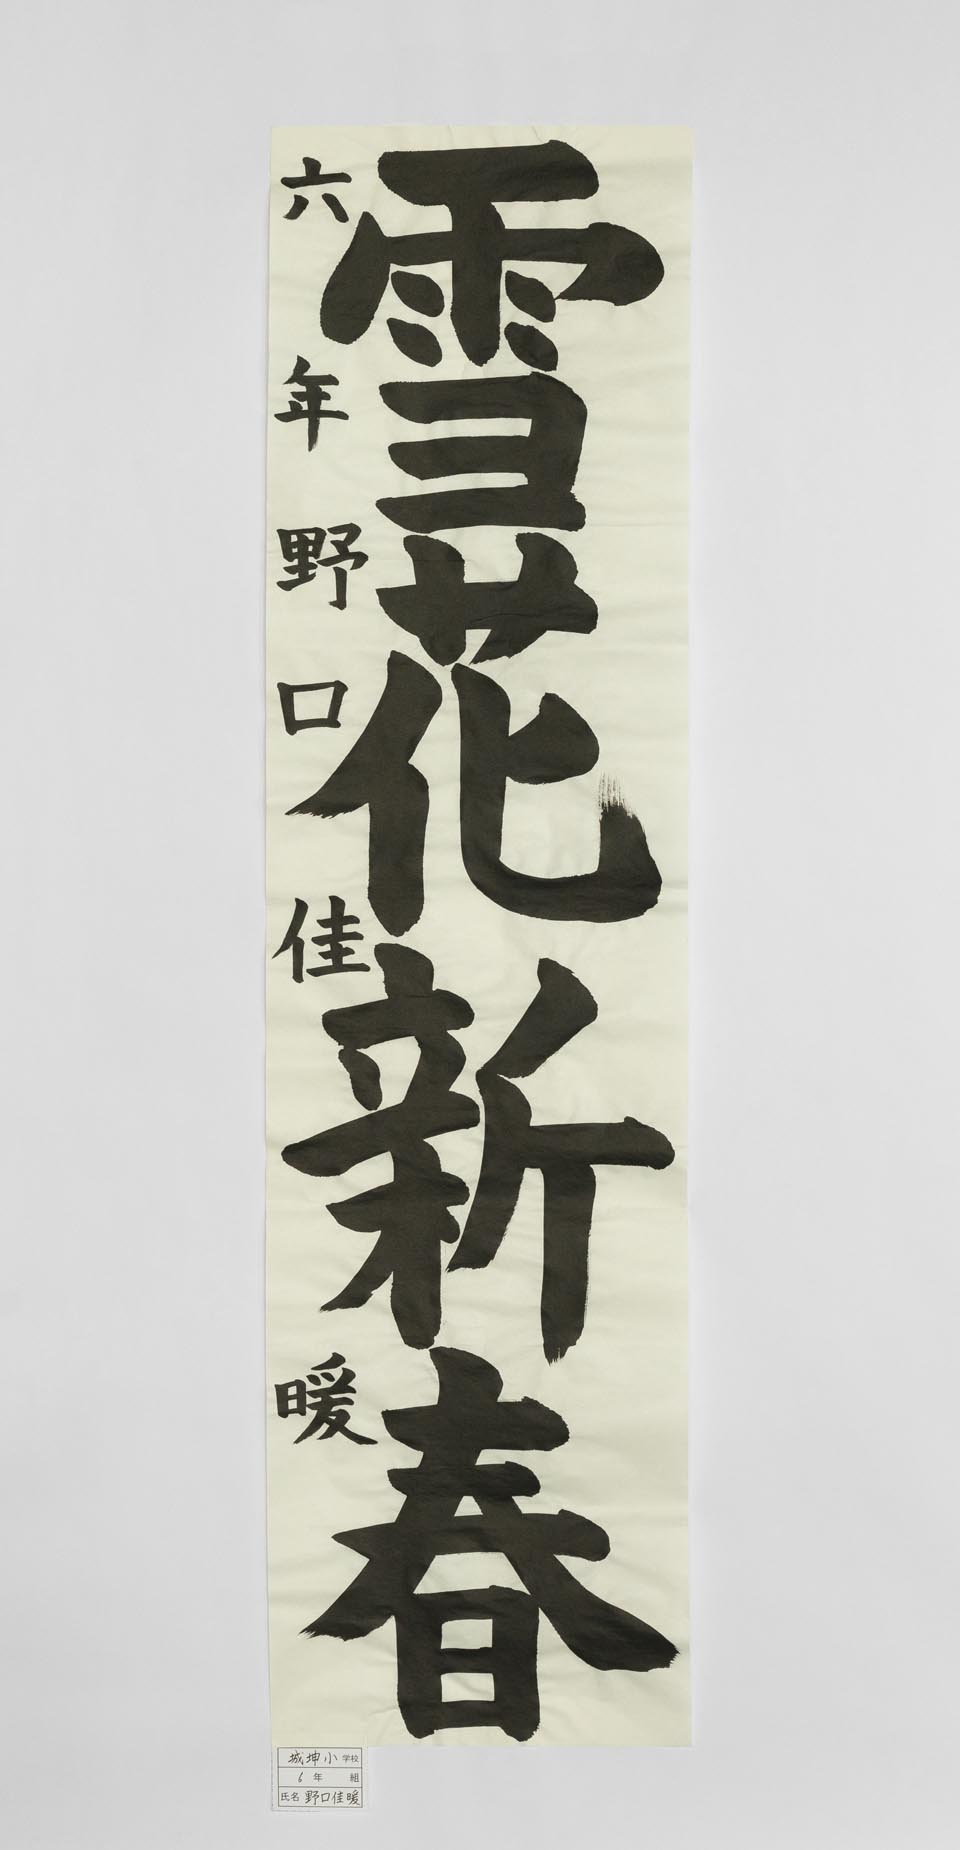 雪花新春
六年野口佳暖
城坤小学校
6年 組
氏名 野口佳暖